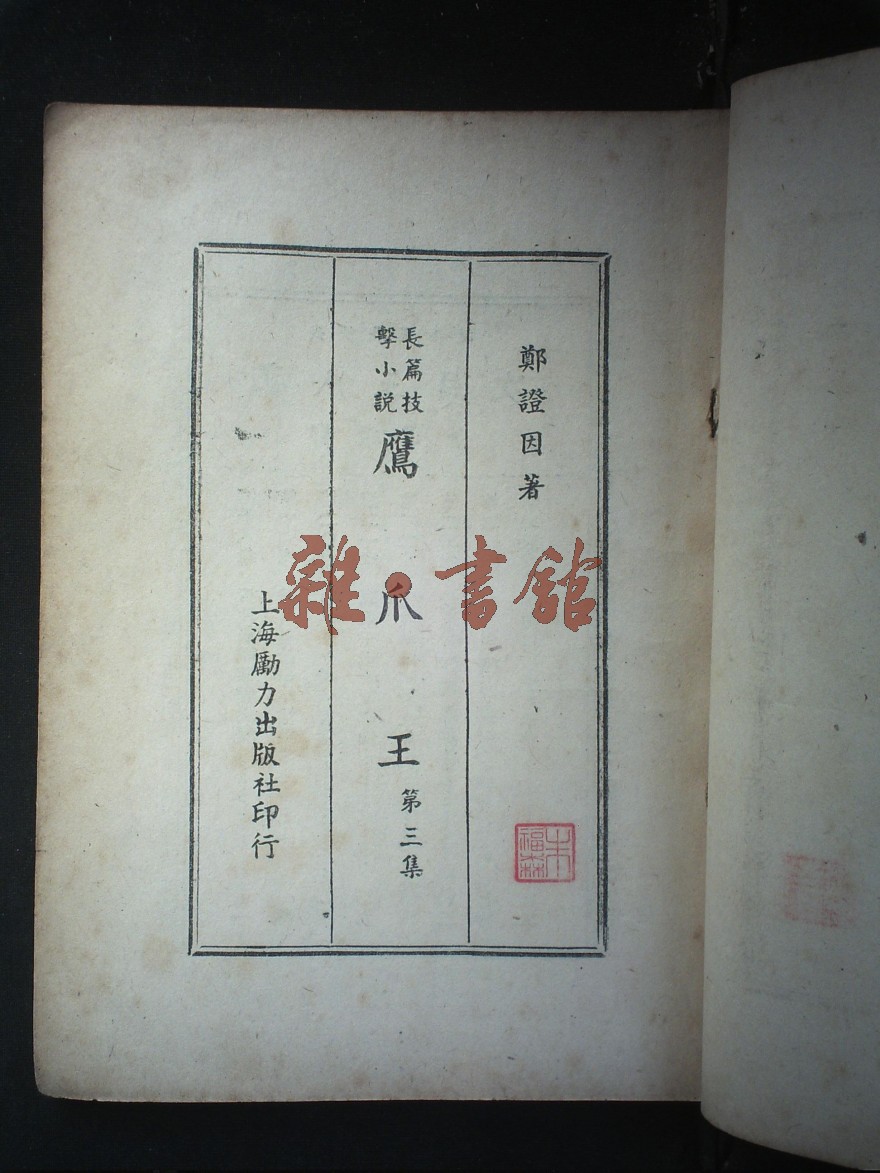 鄭證因著
長篇技
擊小説
鷹爪王
第三集
上海勵力出版社印行
雜·書館
朱福森